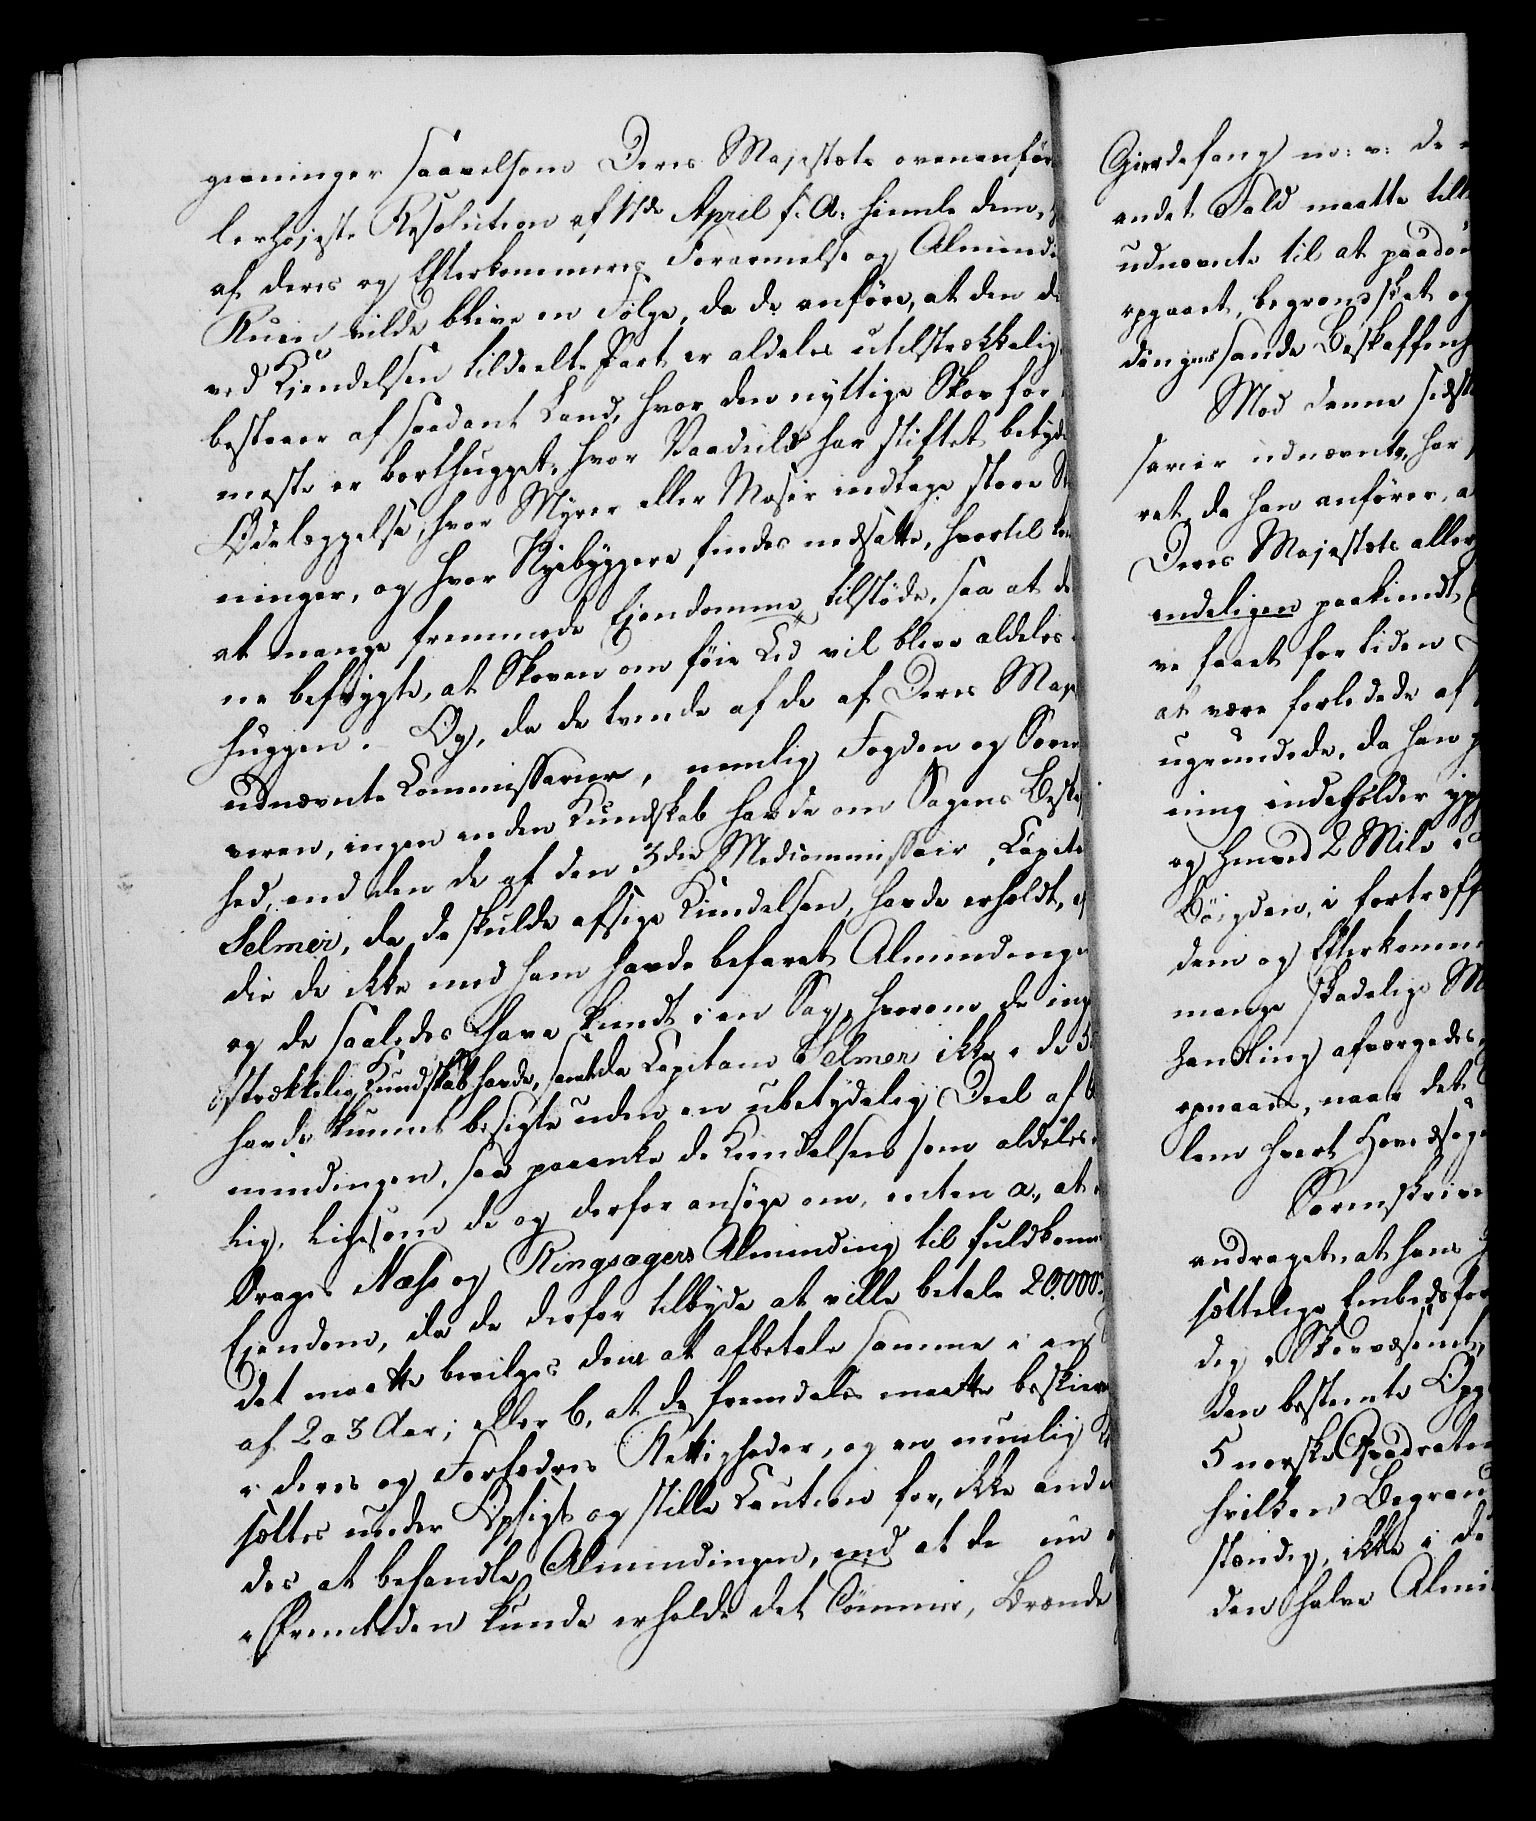 givninger saavelsom Deres Majestæts ovenanfør
lerhøjeste Resolution af 11de April f. A. hiemle dem,
af deres og Efterkommeres Forarmelse og Alminde
Ruin vilde blive en Følge, da de anføre, at den de
ved Kjendelsen tildeelte Part er aldeles utilstrækkelig
bestaaer af saadant Land, hvor den nyttige Skov for
meste er borthugget, hvor Vaadild har stiftet betyde
Ødelæggelse, hvor Myrer eller Moser indtage store St
ninger, og hvor Nyebyggere findes nedsatte, hvortil
at mange fremmede Ejendomme tilstøde, saa at de
ne befrygte, at Skoven om føie Tid vil blive aldeles
huggen. Og, da de tvende af de af Deres Maje
udnævnte Commissarier, nemlig Fogden og Soren
veren, ingen anden Kundskab havde om Sagens Beska
hed, end den de af den 3die Medcommissair, Capita
Selmer, da de skulde afsige Kiendelsen, havde erholdt,
die de ikke med ham havde befaret Almindinge
og de saaledes have kiendt i en Sag, hvorom de inge
strækkelig Kundskab havde, samt da Capitain Selmer ikke i de
havde kunnet besigte uden en ubetydelig Deel af
mindingen, saa paaanke de Kiendelsen som aldeles
lig, ligesom de og derfor ansøge om, enten a., at
drages Næss og Ringsagers Alminding til fuldkomm
Ejendom, da de derfor tilbyde at ville betale 20,000
det maatte bevilges dem at afbetale samme i en
af 2 a 3 Aar; eller b, at de fremdeles maatte beskierm
i deres og Forfædres Rettigheder, og en nemlig
sættes under Opsigt og stille Caution for, ikke ander
des at behandle Almindingen, end at de nu
i Fremtiden kunde erholde det Tømmer, Brænde
Gierdefang m: v: de
andet Fald maatte till
udnævnte til at paadøm
opgaaet, begrændset og
dingens sande Beskaffenh
Mod denne sidste
sarier udnævnte, har
ret, da han anfører, a
Deres Majestæts aller
endeligen paakiendt
ve faaet for liden
at være forledede af
ugrundede, da han
ning indeholder ypp
og henved 2 Mile i
Bøigden, i fortræff
dem og Efterkomme
mange skadelige M
handling afværgedes,
opnaaes, naar det
lem hvert Hovedsog
Sorenskrive
andraget, at hans
sættelige Embedsfor
dig i Skovvæsenet,
den bestemte Opga
5 norske Qvadrat
hvilken Begrænd
stændig, ikke i de
den halve Almi